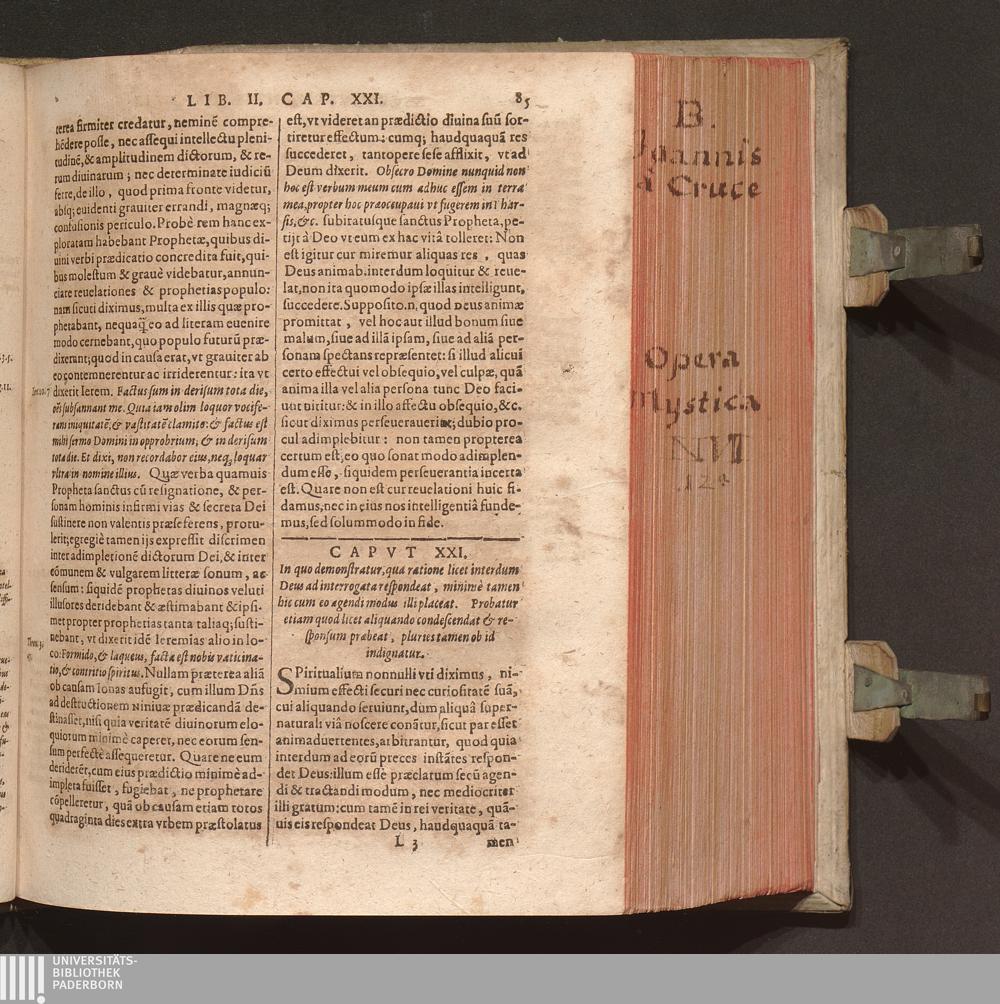 LIB. II. CAP. XXI. 85
terea firmiter credatur, neminē compre-
hēdere posse, nec assequi intellectu pleni-
tudinē, & amplitudinem dictorum, & re-
rum diuinarum; nec determinate iudiciū
ferre, de illo, quod prima fronte videtur,
absq; euidenti grauiter errandi, magnæq;
confusionis periculo. Probè rem hanc ex-
ploratam habebant Prophetæ, quibus di-
uini verbi prædicatio concredita fuit, qui-
bus molestum & grauè videbatur, annun-
ciare reuelationes & prophetias populo:
nam sicuti diximus, multa ex illis quæ pro-
phetabant, nequaq̃ eo ad literam euenire
modo cernebant, quo populo futurū præ-
dixerant; quod in causa erat, vt grauiter ab
eo contemnerentur ac irriderentur: ita vt
dixerit Ierem. Factus sum in derisum tota die,
oēs subsannant me. Quia iam olim loquor vocife-
rans iniquitatē, & vastitatē clamito: & factus est
mihi sermo Domini in opprobrium, & in derisum
tota die. Et dixi, non recordabor eius, neq; loquar
vltra in nomine illius. Quæ verba quamuis
Propheta sanctus cū resignatione, & per-
sonam hominis infirmi vias & secreta Dei
sustinere non valentis præse ferens, protu-
lerit; egregiè tamen ijs expressit discrimen
inter adimpletionē dictorum Dei, & inter
cōmunem & vulgarem litteræ sonum, ac
sensum: siquidē prophetas diuinos veluti
illusores deridebant & æstimabant & ipsi-
met propter prophetias tanta taliaq; susti-
nebant, vt dixerit idē Ieremias alio in lo-
co: Formido, & laqueus, facta est nobis vaticina-
tio, & contritio spiritus. Nullam præterea aliā
ob causam Ionas aufugit, cum illum Dn̄s
ad destructionem Niniuæ prædicandā de-
stinasset, nisi quia veritatē diuinorum elo-
quiorum minimè caperet, nec eorum sen-
sum perfectè assequeretur. Quare ne eum
deriderēt, cum eius prædictio minimè ad-
impleta fuisset, fugiebat, ne prophetare
cōpelleretur, quā ob causam etiam totos
quadraginta dies extra vrbem præstolatus
Ier. 20. 7
Thren. 3.
est, vt videret an prædictio diuina suū sor-
tiretur effectum: cumq; haudquaquā res
succederet, tantopere sese afflixit, vt ad
Deum dixerit. Obsecro Domine nunquid non
hoc est verbum meum cum adhuc essem in terra
mea, propter hoc præoccupaui vt fugerem in Thar-
sis, &c. subiratusque sanctus Propheta, pe-
tijt à Deo vt eum ex hac vitâ tolleret: Non
est igitur cur miremur aliquas res, quas
Deus animab. interdum loquitur & reue-
lat, non ita quomodo ipsæ illas intelligunt,
succedere. Supposito. n. quod Deus animæ
promittat, vel hoc aut illud bonum siue
malum, siue ad illā ipsam, siue ad aliā per-
sonam spectans repræsentet: si illud alicui
certo effectui vel obsequio, vel culpæ, quā
anima illa vel alia persona tunc Deo faci-
unt nititur: & in illo affectu obsequio, &c.
sicut diximus perseuerauerint; dubio pro-
cul adimplebitur: non tamen propterea
certum est, eo quo sonat modo adimplen-
dum esse, siquidem perseuerantia incerta
est. Quare non est cur reuelationi huic fi-
damus, nec in eius nos intelligentiâ funde-
mus, sed solummodo in fide.
CAPVT XXI.
In quo demonstratur, qua ratione licet interdum
Deus ad interrogata respondeat, minimè tamen
hic cum eo agendi modus illi placeat. Probatur
etiam quod licet aliquando condescendat & re-
sponsum præbeat, pluries tamen ob id
indignatur.
SPiritualium nonnulli vti diximus, ni-
mium effecti securi nec curiositatē suā,
cui aliquando seruiunt, dum aliquâ super-
naturali viâ noscere conātur, sicut par esset
animaduertentes, arbitrantur, quod quia
interdum ad eorū preces instātes respon-
det Deus: illum esse præclarum secū agen-
di & tractandi modum, nec mediocriter
illi gratum: cum tamē in rei veritate, quā-
uis eis respondeat Deus, haudquaquā ta-
L 3 men
B.
Joannis
à Cruce
Opera
Mystica
UNIVERSITÄTS-
BIBLIOTHEK
PADERBORN